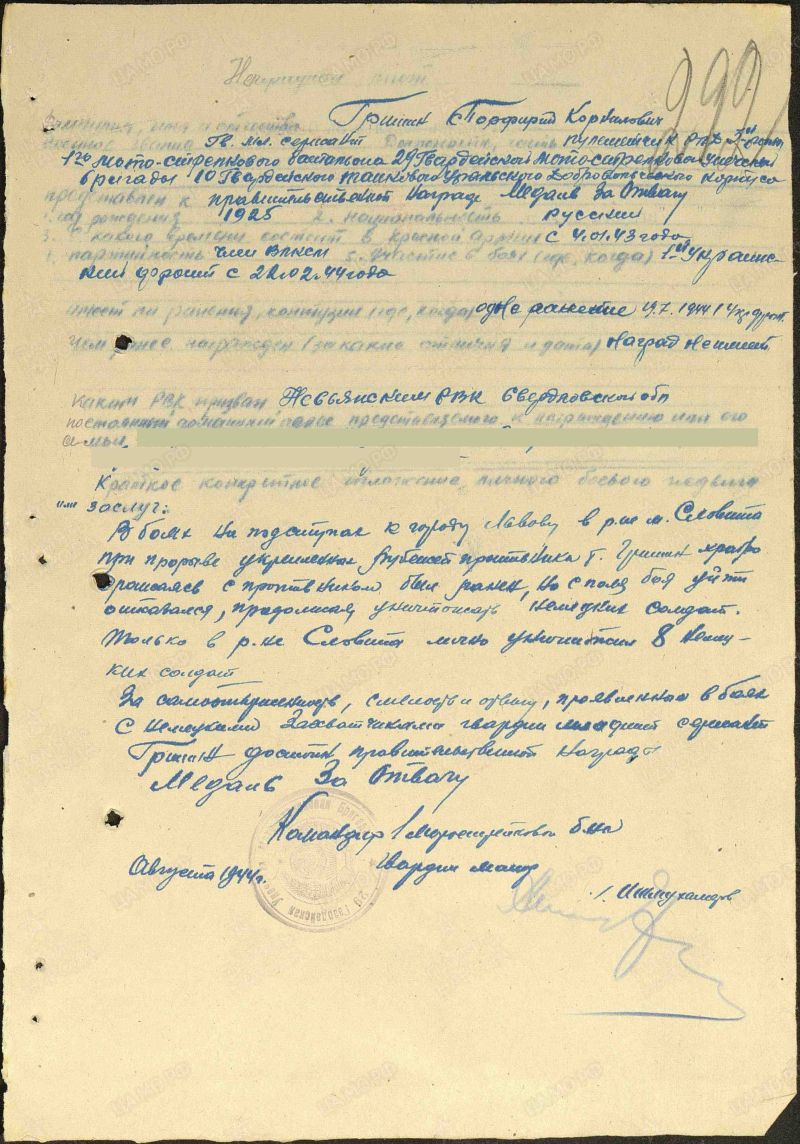 Наградной лист
Фамилия, имя и отчество Гришин Порфирий Корнилович
военное звание Гв. мл. сержант Должность, часть пулеметчик
1го мото-стрелкового батальона 29 Гвардейской мото-стрелковой Унечской
бригады 10 Гвардейского танкового Уральского Добровольческого корпуса
представлен к правительственной награде Медаль За Отвагу
1. год рождения 1925 2. национальность русский
3. С какого времени состоит в Красной Армии с 4.01.43 года
4. партийность член ВЛКСМ 5. Участие в боях (где, когда) 1й Украинс-
кий фронт с 22.02.44 года
имеет ли ранения, контузии (где, когда) одно ранение 19.7.1944 1 Укр. фронт
Чем ранее награжден (за какие отличия и дата) Наград не имеет
Каким РВК призван Невьянским РВК Свердловской обл
постоянный домашний адрес представляемого к награждению или его
семьи
Краткое конкретное изложение личного боевого подвига
или заслуг:
В боях на подступах к городу Львову в р-не м. Словита
при прорыве укрепленных рубежей противника т. Гришин храбро
сражаясь с противником был ранен, но с поля боя уйти
отказался, продолжая уничтожать немецких солдат.
Только в р-не Словита лично уничтожил 8 немец-
ких солдат
За самоотверженность, смелость и отвагу, проявленные в боях
с немецкими захватчиками гвардии младший сержант
Гришин достоин правительственной награды
Медаль За Отвагу
Командир 1 мотострелковой б-на
Гвардии майор
Августа 1944 г.
/. Ишмухамедов